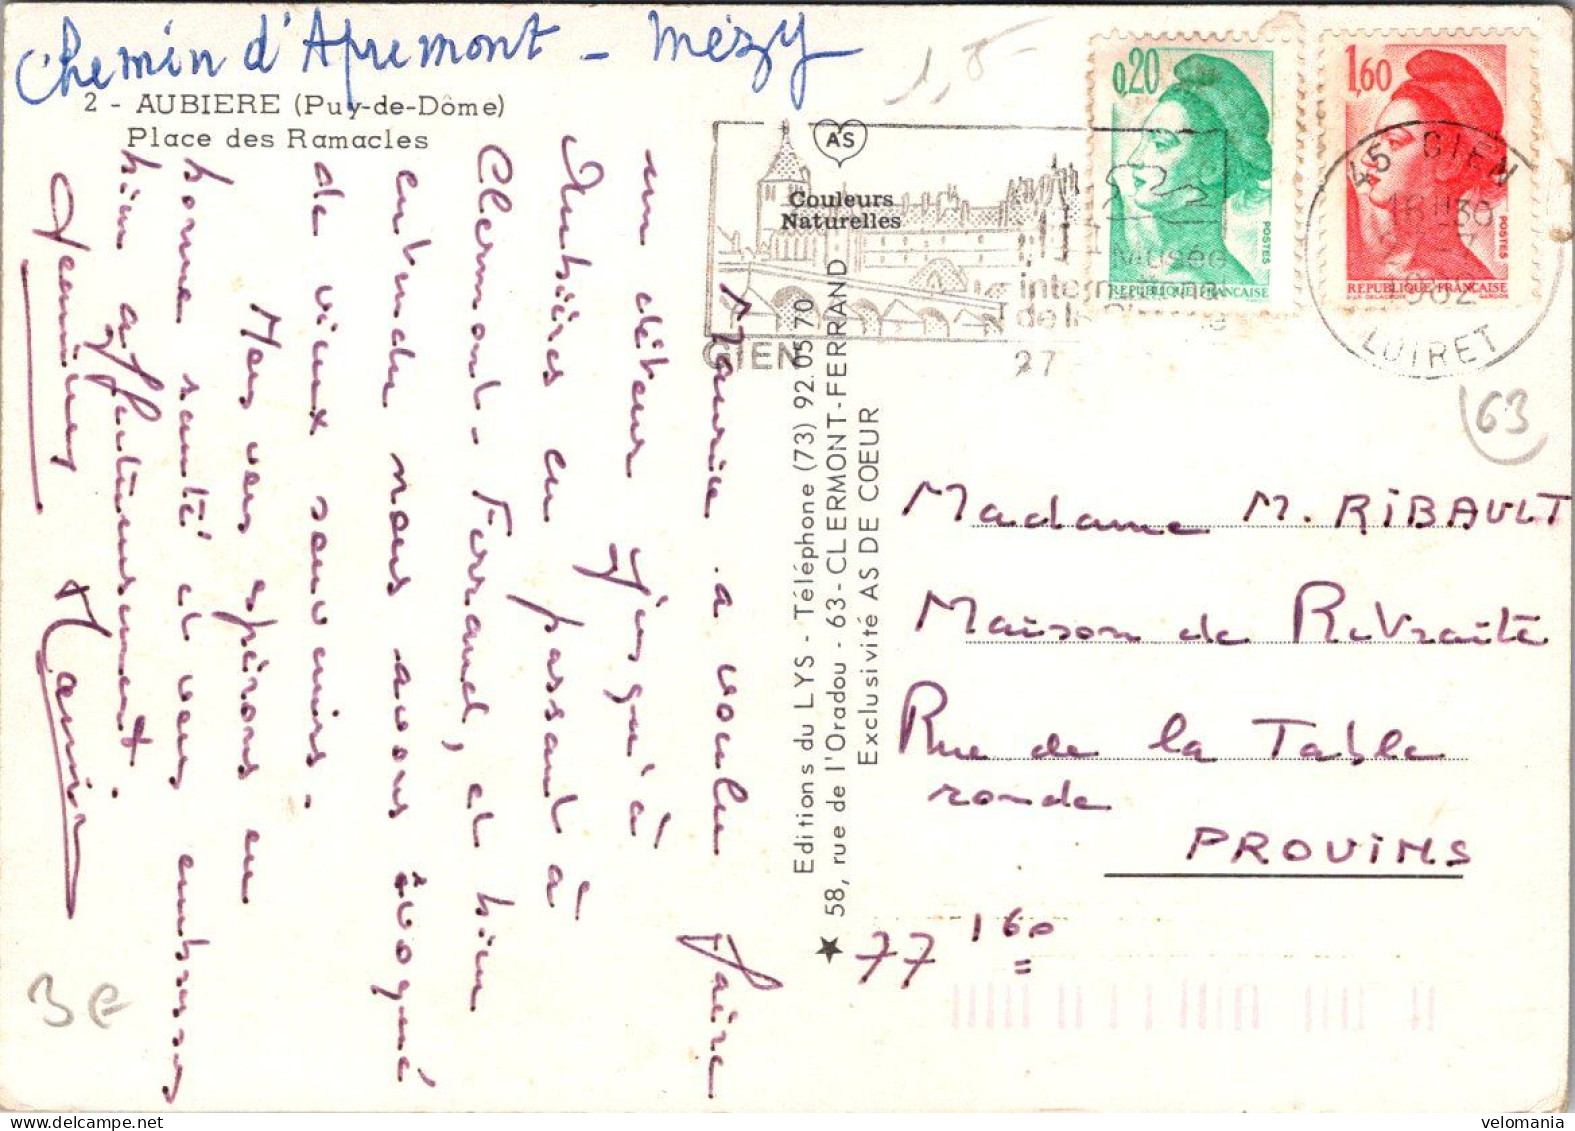 Chemin d'Apremont - Mézy
2 - AUBIERE (Puy-de-Dôme)
Place des Ramacles
Maurice a voulu faire
un détour jusqu'à
Aubière en passant à
Clermont-Ferrand, et bien
entendu nous avons évoqué
de vieux souvenirs.
Mais vous espérons en
bonne santé et vous embrassons
bien affectueusement.
AS
Couleurs
Naturelles
GIEN
Musée
international
de la
27
Editions du LYS - Téléphone (73) 92.05.70
★ 58, rue de l'Oradou - 63-CLERMONT-FERRAND
Exclusivité AS DE COEUR
1,5-
0,20
POSTES
REPUBLIQUE FRANÇAISE
1,60
POSTES
REPUBLIQUE FRANÇAISE
D'AP. DELACROIX GANDON
45 GIEN
16H30
1982
LOIRET
63
Madame M. RIBAULT
Maison de Retraite
Rue de la Table
ronde
PROVINS
77 160
3 €
velomania